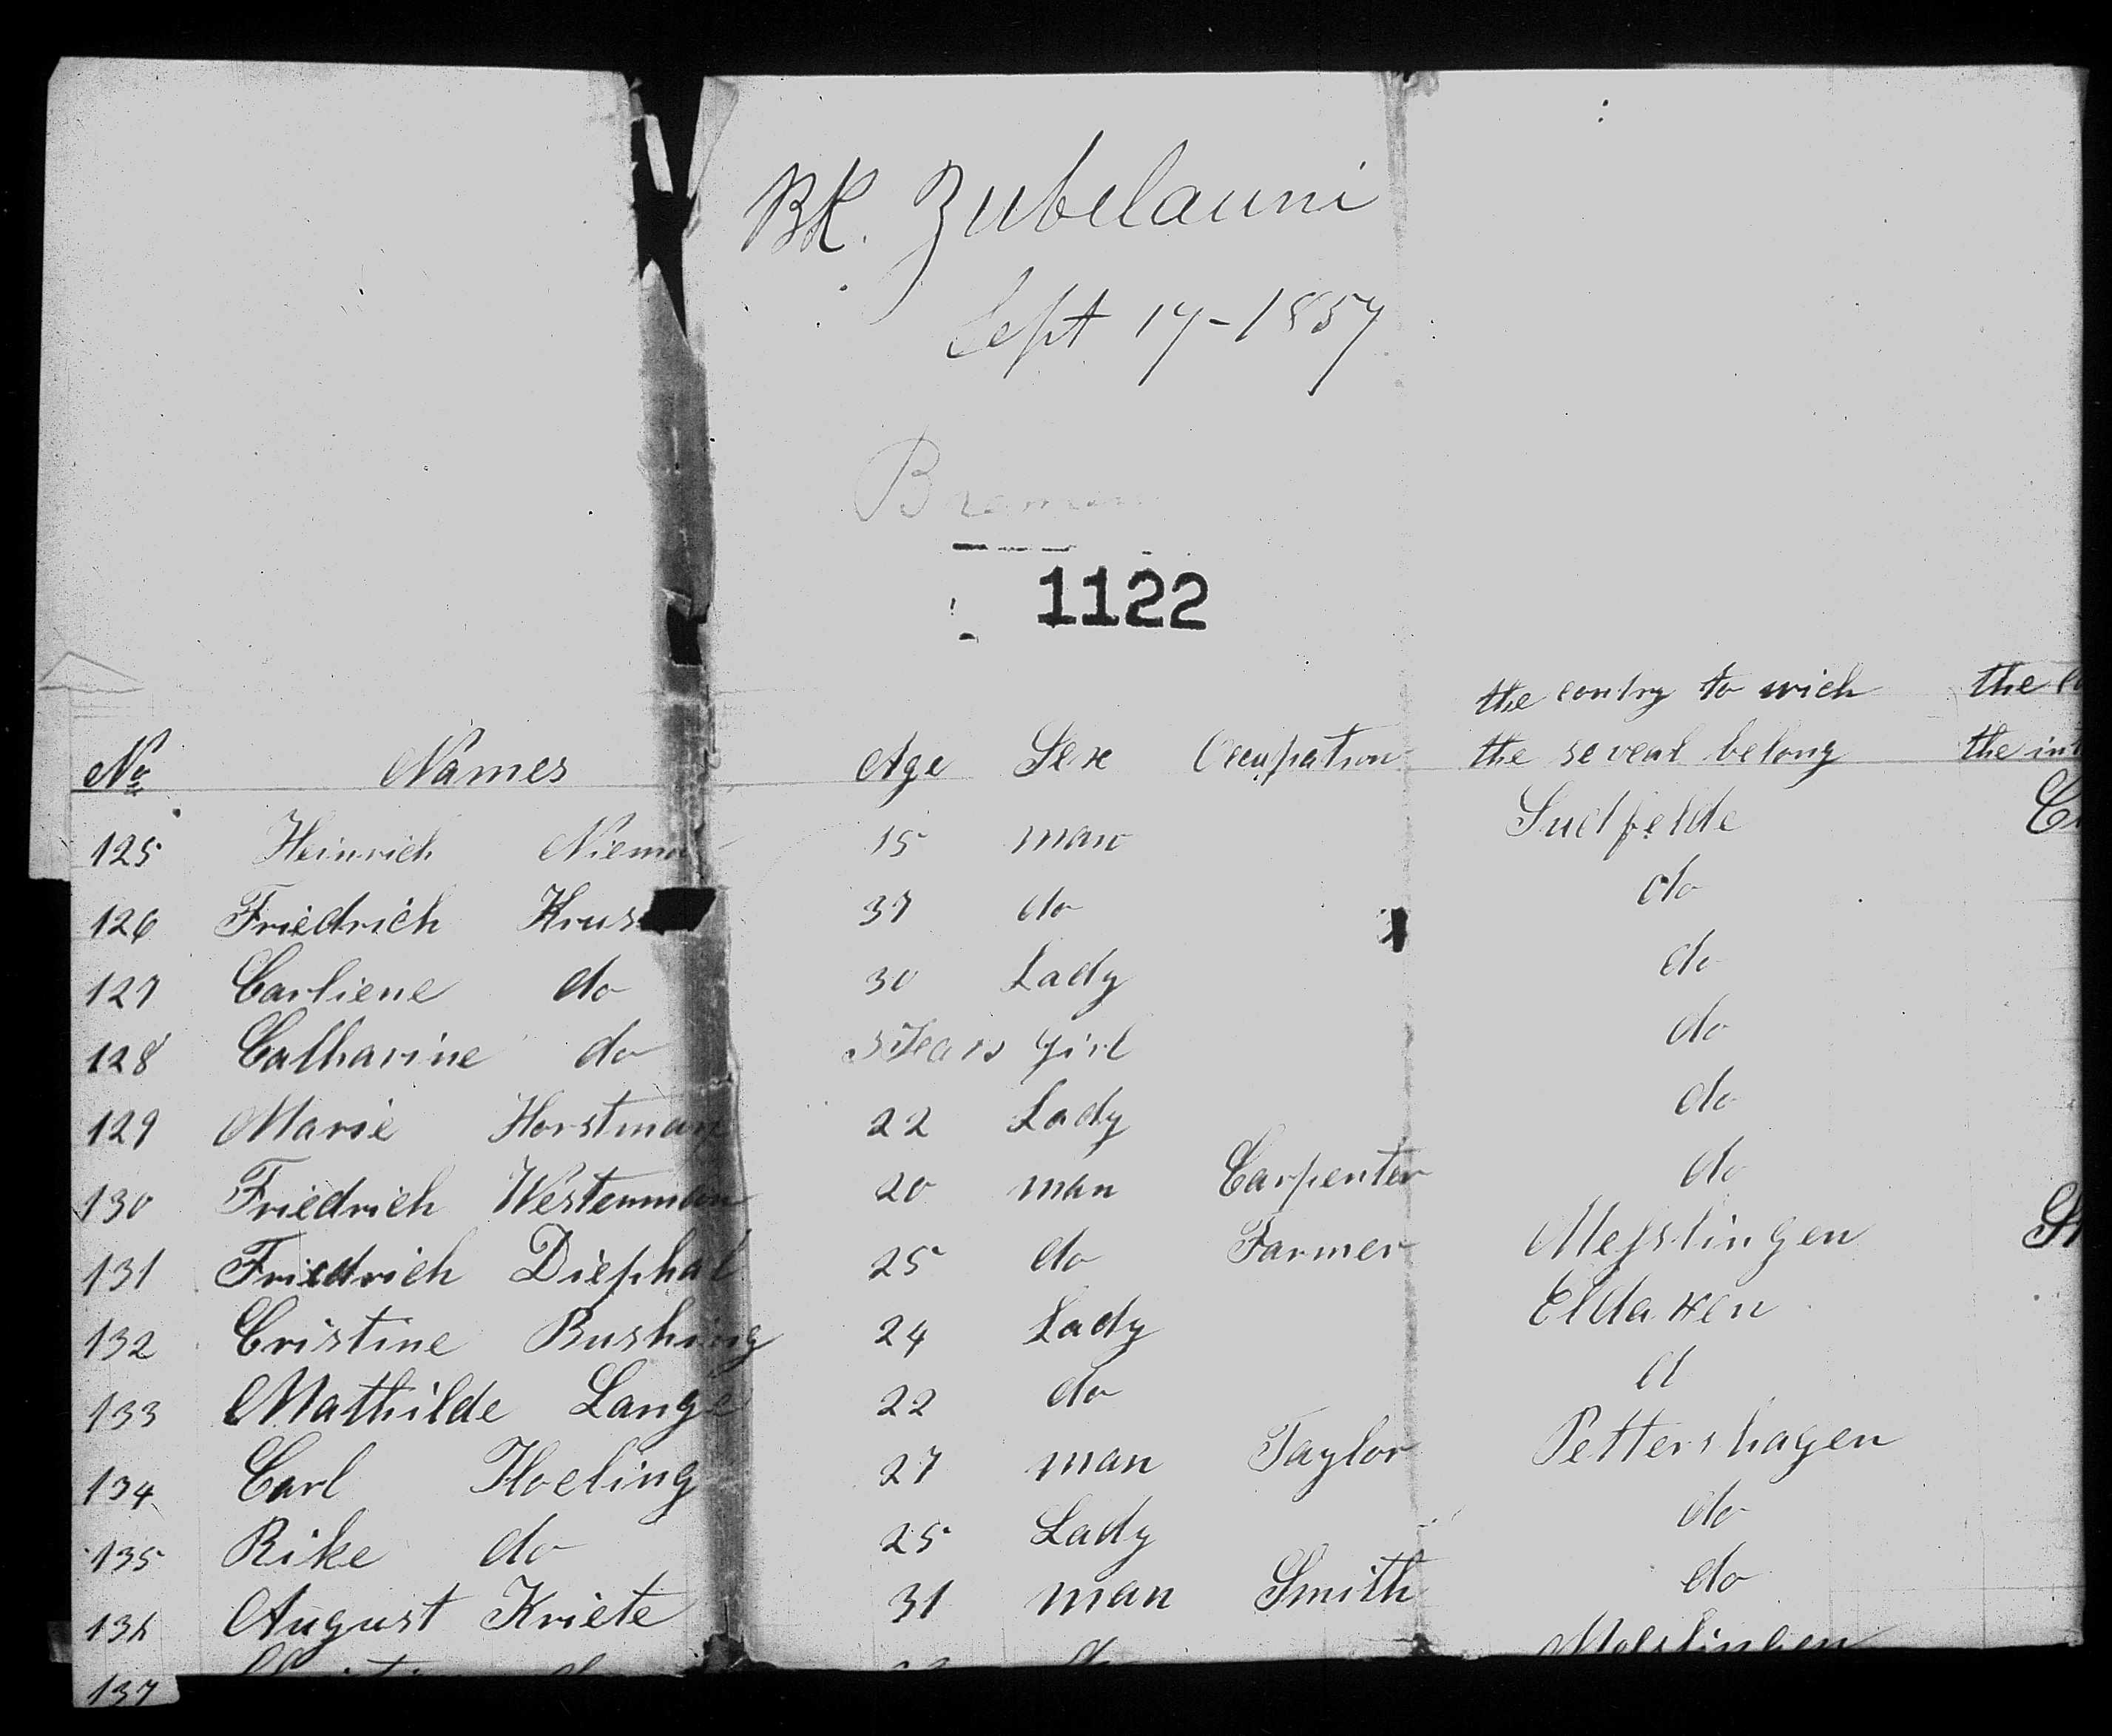 BK. Zubelauni
Sept 17-1857
Bremen
1122
the contry to wich
No Names Age Sex Occupation the seveal belong
125 Heinrich 15 man Sudfelde
126 Friedrich 37 do do
127 Carliene do 30 Lady do
128 Catharine do 3 Years girl do
129 Marie Horstman 22 Lady do
130 Friedrich Westenman 20 man Carpenter do
131 Friedrich Diephal 25 do Farmer Messlingen
132 Cristine Bushing 24 Lady Eldaxen
133 Mathilde Lange 22 do
134 Carl Hoeling 27 man Taylor Pettershagen
135 Rike do 25 Lady do
136 August Kriete 31 man Smith do
137